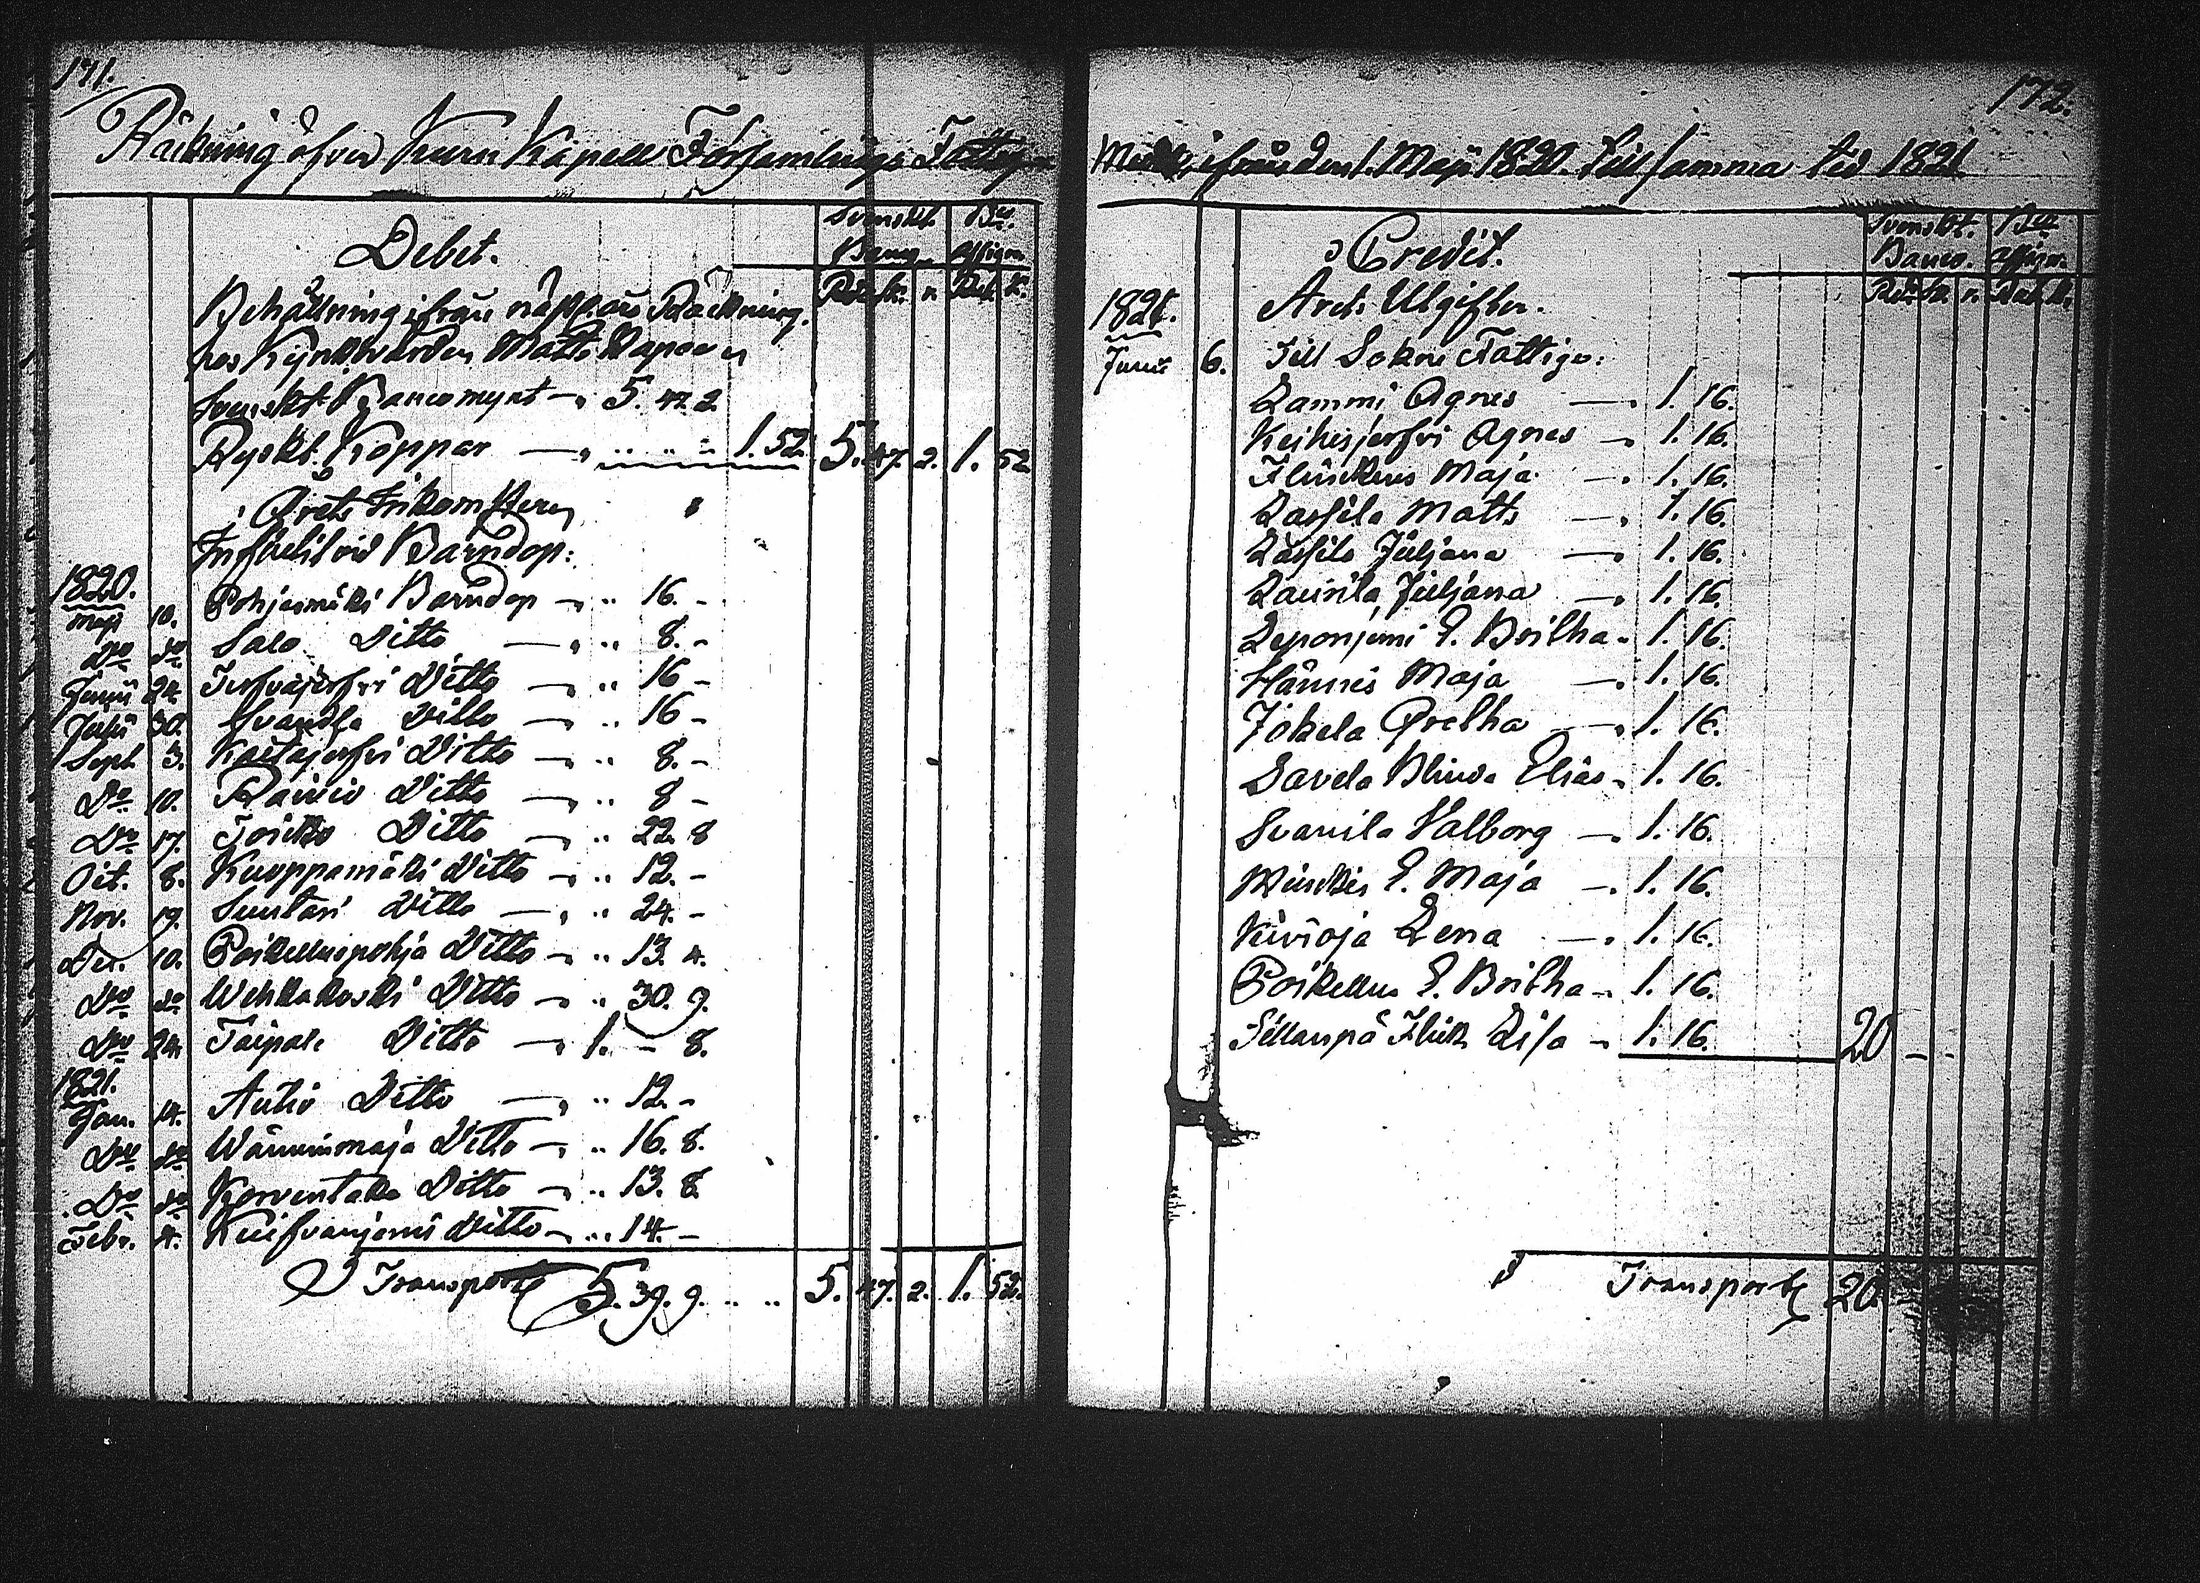 171.
Räkning öfver Kuru Kapell Församlings Fattigas
Debet.
Svenskt Banco. Bco. assign.
Rd. sk. r. Rub. K.
Behållning ifrån näst för. Räkning.
hos Kyrkovärden Matts
Svenskt Bancomynt — 5. 47. 2
Ryskt Koppar — " " " 1. 52. 5. 47. 2. 1. 52
Årets Inkomster
Influtit vid Barndop:
1820.
Maji 10. Pohjasmäki Barndop — " 16. -
Do do Salo Ditto — " 8. -
Junii 24. Ditto — " 16 -
Julii 30. Ditto — " 16 -
Sept 3. Ditto — " 8. -
Do 10. Raivio Ditto — " 8 -
Do 17. Toikko Ditto — " 22. 8
Oct. 8. Kuoppamäki Ditto — " 12. -
Nov. 19. Suntari Ditto — " 24. -
Dec. 10. Poikelluspohja Ditto — " 13. 4.
Do do Wehkakoski Ditto — " 30. 9.
Do 24. Taipale Ditto — 1. - 8.
1821.
Jan. 14. Autio Ditto — " 12. -
Do do Wänninmaja Ditto — " 16. 8.
Do do Korventaka Ditto — " 13. 8.
Febr. 4. Ditto — " 14. -
Transporte 5. 39. 9. .. .. 5. 47. 2. 1. 52.
172.
Medel, ifrån den 1. Maji 1820. till samma tid 1821.
Credit.
Svenskt. Banco. Bco. assign.
Rd. sk. r. Rub. K.
1821. Årets Utgifter.
Junii 6. Till Sokne Fattige:
Lammi Agnes — 1. 16.
Keihisjerfvi Agnes — 1. 16.
Maja — 1. 16.
Lassila Matts — 1. 16.
Lassila Juljana — 1. 16.
Laurila Juljana — 1. 16.
Leponjemi E. Britha — 1. 16.
Hännis Maja — 1. 16.
Jokela Gretha — 1. 16.
Savela Blinda Elias — 1. 16.
Svanila Valborg — 1. 16.
Minckis E. Maja — 1. 16.
Kivioja Lena — 1. 16.
Poikellus E. Britha — 1. 16.
Sillanpä Flick Lisa — 1. 16. 20 - -
Transporte 20. -